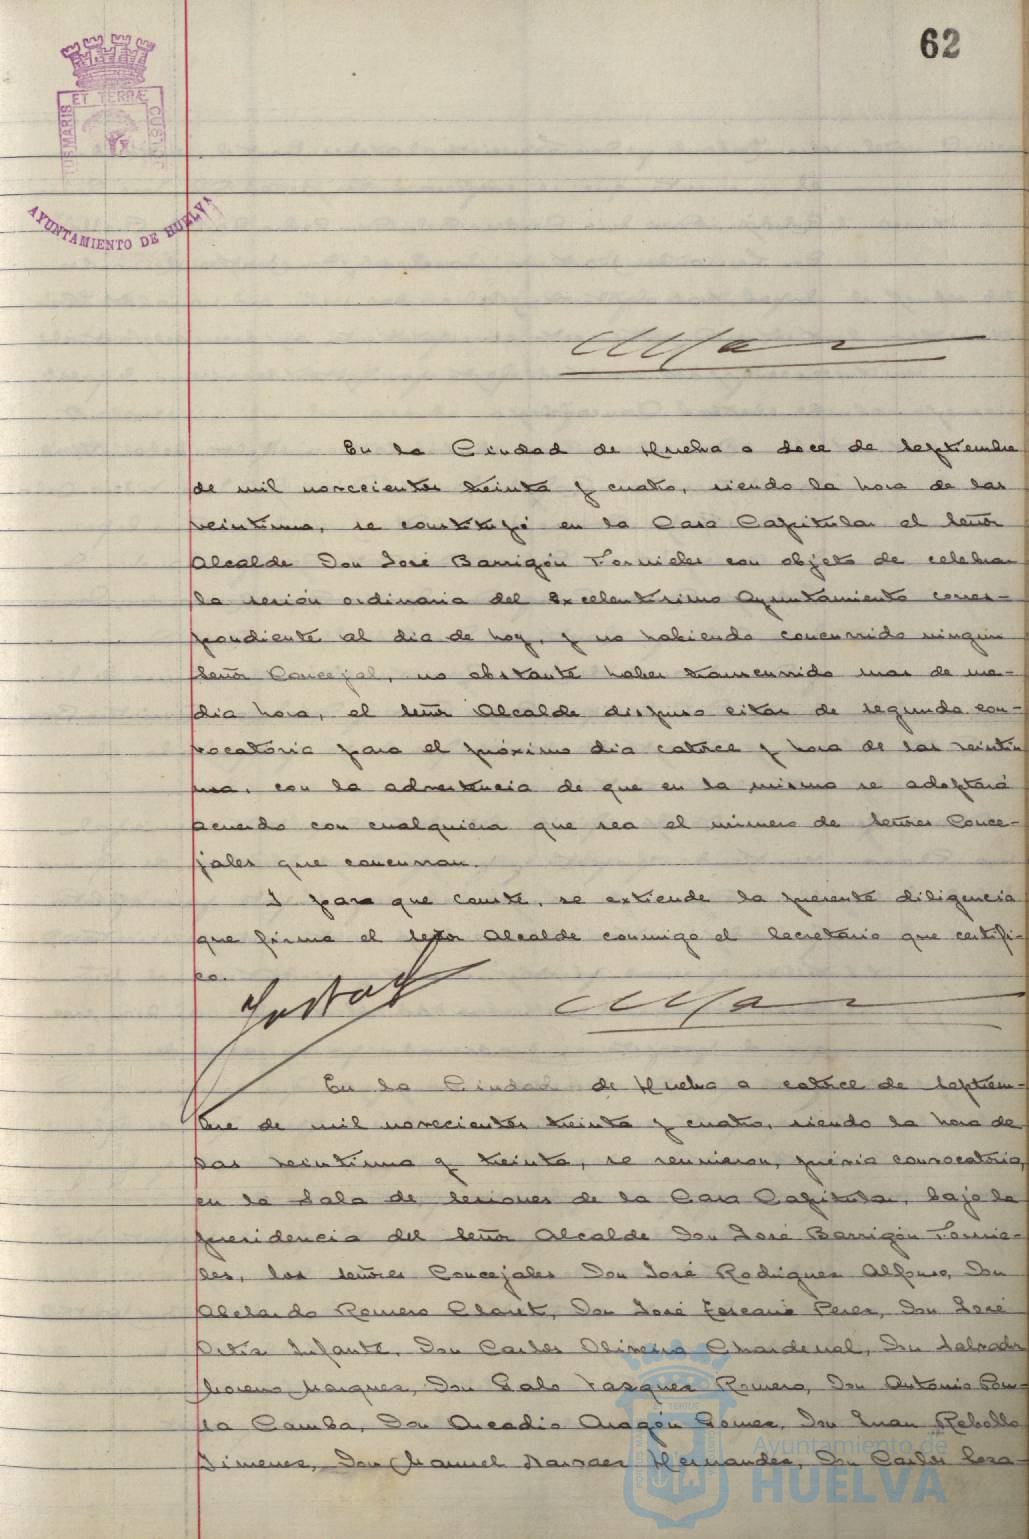 62
ET TERRÆ
MARIS
AYUNTAMIENTO DE HUELVA
En la Ciudad de Huelva a doce de Septiembre
de mil novecientos treinta y cuatro, siendo la hora de las
veintiuna, se constituyó en la Casa Capitular el Señor
Alcalde Don José Barrigón Fornieles con objeto de celebrar
la sesión ordinaria del Excelentísimo Ayuntamiento corres-
pondiente al dia de hoy, y no habiendo concurrido ningun
Señor Concejal, no obstante haber transcurrido mas de me-
dia hora, el Señor Alcalde dispuso citar de segunda con-
vocatoria para el próximo dia catorce y hora de las veintiu
na, con la advertencia de que en la misma se adoptará
acuerdo con cualquiera que sea el número de Señores Conce-
jales que concurran.
Y para que conste, se extiende la presente diligencia
que firma el Señor Alcalde conmigo el Secretario que certifi-
co.
En la Ciudad de Huelva a catorce de Septiem-
bre de mil novecientos treinta y cuatro, siendo la hora de
las veintiuna y treinta, se reunieron, previa convocatoria,
en la Sala de Sesiones de la Casa Capitular, bajo la
presidencia del Señor Alcalde Don José Barrigón Fornie-
les, los Señores Concejales Don José Rodriguez Alfonso, Don
Abelardo Romero Claret, Don José Toscano Perez, Don José
Ortiz Infante, Don Carlos Oliveira Chardenal, Don Salvador
Moreno Marquez, Don Galo Vazquez Romero, Don Antonio Pon-
ce Camba, Don Arcadio Aragón Gomez, Don Juan Rebollo
Jimenez, Don Manuel Narvaez Hernandez, Don Carlos Sera-
Ayuntamiento de
HUELVA